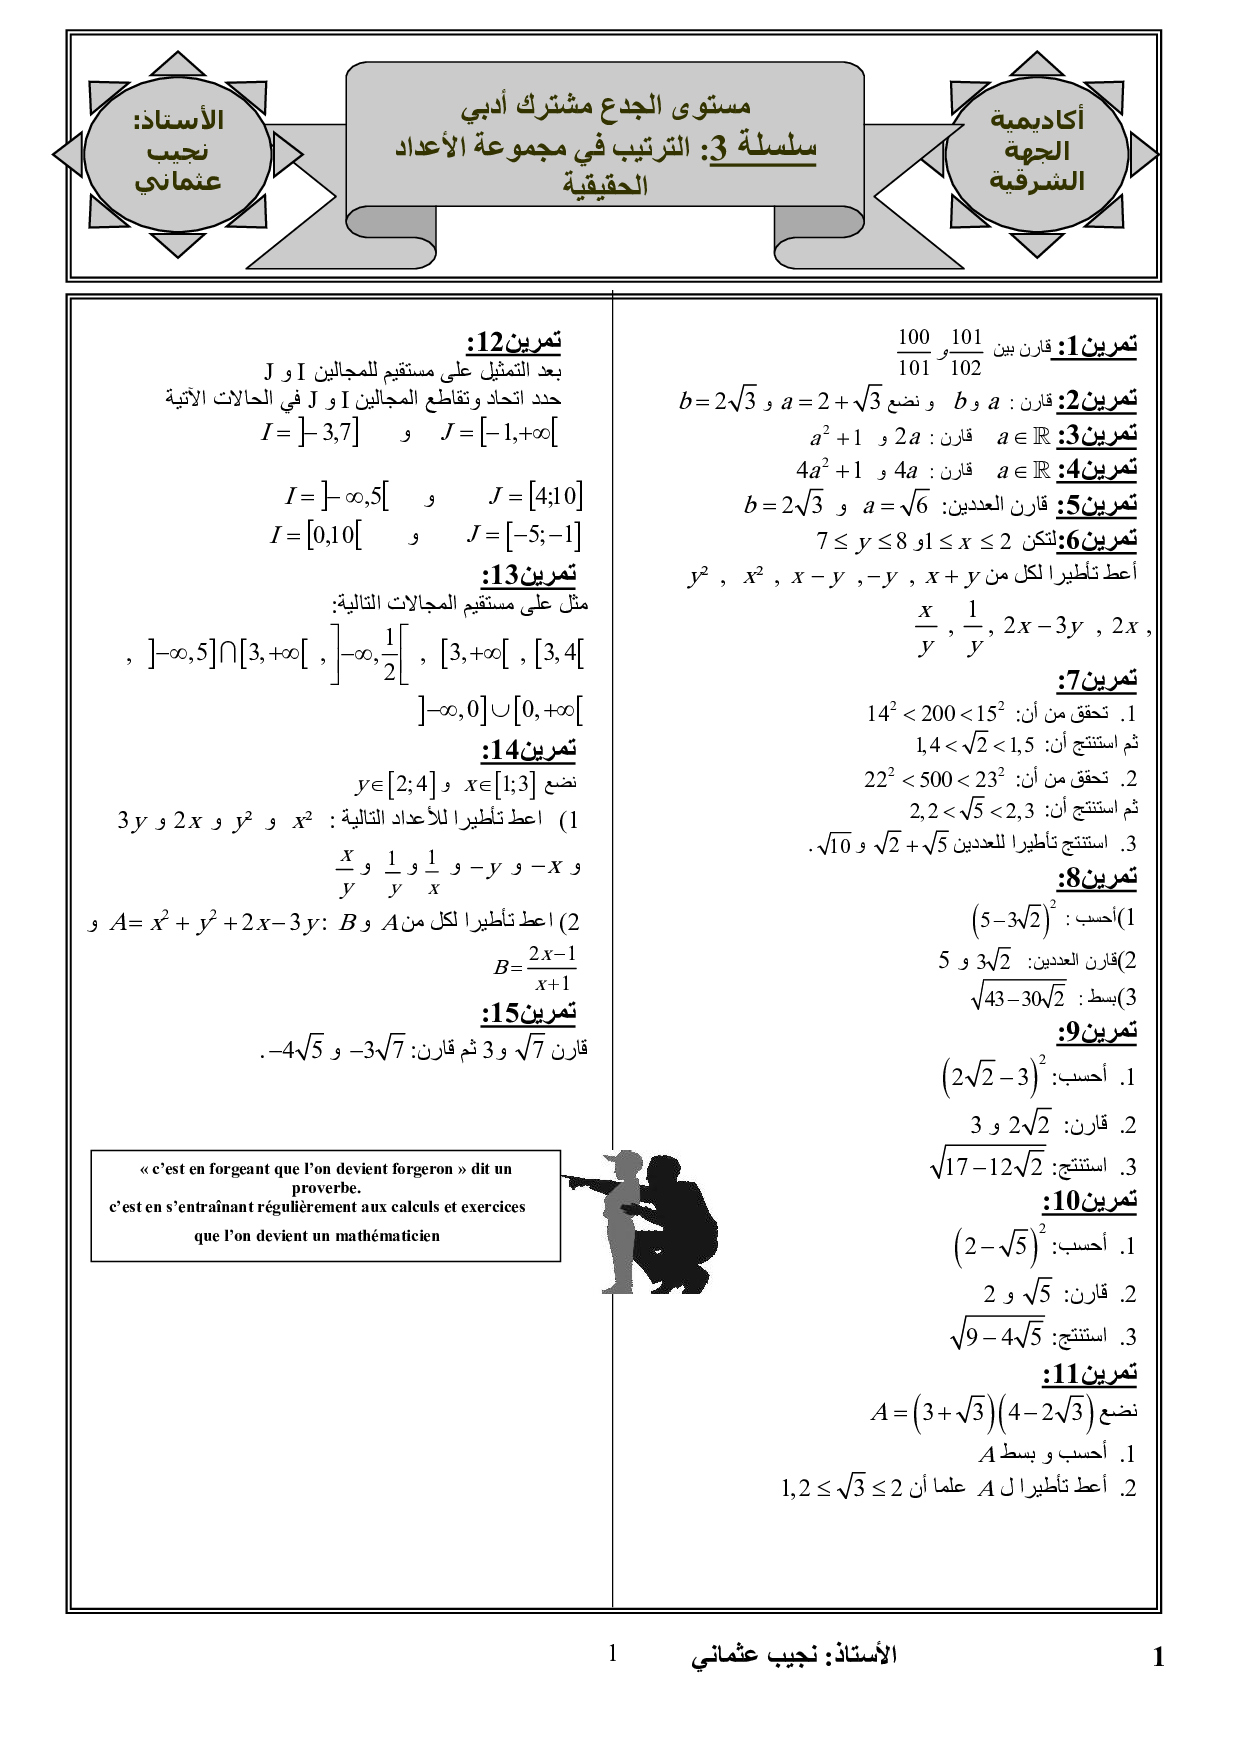 أكاديمية
الجهة
الشرقية
مستوى الجدع مشترك أدبي
سلسلة 3: الترتيب في مجموعة الأعداد
الحقيقية
الأستاذ:
نجيب
عثماني
تمرين1: قارن بين 101/102 و 100/101
تمرين2: قارن : a و b و نضع a = 2 + √3 و b = 2√3
تمرين3: a ∈ ℝ قارن : 2a و a² + 1
تمرين4: a ∈ ℝ قارن : 4a و 4a² + 1
تمرين5: قارن العددين: a = √6 و b = 2√3
تمرين6:لتكن 1 ≤ x ≤ 2 و 7 ≤ y ≤ 8
أعط تأطيرا لكل من x + y , −y , x − y , x² , y²
, 2x , 2x − 3y , 1/y , x/y
تمرين7:
1. تحقق من أن: 14² < 200 < 15²
ثم استنتج أن: 1,4 < √2 < 1,5
2. تحقق من أن: 22² < 500 < 23²
ثم استنتج أن: 2,2 < √5 < 2,3
3. استنتج تأطيرا للعددين √2 + √5 و √10 .
تمرين8:
1)أحسب : (5 − 3√2)²
2)قارن العددين: 3√2 و 5
3)بسط : √(43 − 30√2)
تمرين9:
1. أحسب: (2√2 − 3)²
2. قارن: 2√2 و 3
3. استنتج: √(17 − 12√2)
تمرين10:
1. أحسب: (2 − √5)²
2. قارن: √5 و 2
3. استنتج: √(9 − 4√5)
تمرين11:
نضع A = (3 + √3)(4 − 2√3)
1. أحسب و بسط A
2. أعط تأطيرا ل A علما أن 1,2 ≤ √3 ≤ 2
تمرين12:
بعد التمثيل على مستقيم للمجالين I و J
حدد اتحاد وتقاطع المجالين I و J في الحالات الآتية
J = [−1,+∞[ و I = ]−3,7]
J = [4;10] و I = ]−∞,5[
J = [−5;−1] و I = [0,10[
تمرين13:
مثل على مستقيم المجالات التالية:
[3,4[ , [3,+∞[ , ]−∞,1/2[ , ]−∞,5]∩[3,+∞[ ,
]−∞,0]∪[0,+∞[
تمرين14:
نضع x∈[1;3] و y∈[2;4]
1) اعط تأطيرا للأعداد التالية : x² و y² و 2x و 3y
و −x و −y و 1/x و 1/y و x/y
2) اعط تأطيرا لكل من A و B : A = x² + y² + 2x − 3y و
B = (2x−1)/(x+1)
تمرين15:
قارن √7 و3 ثم قارن: −3√7 و −4√5 .
« c’est en forgeant que l’on devient forgeron » dit un
proverbe.
c’est en s’entraînant régulièrement aux calculs et exercices
que l’on devient un mathématicien
الأستاذ: نجيب عثماني
1
1